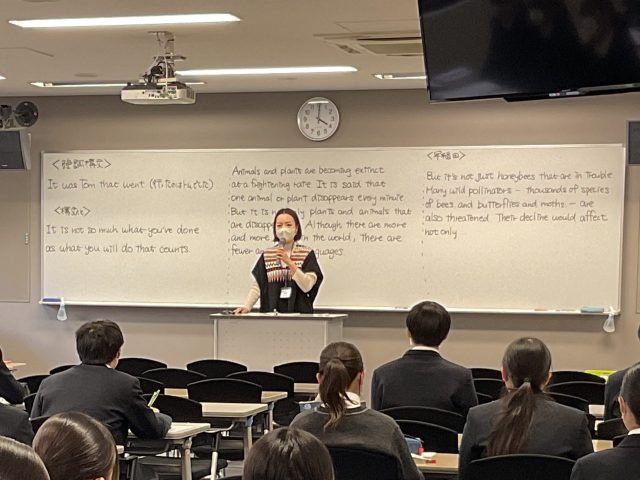 <強調構文>
It was Tom that went
<構文と>
It is not so much what you've done
as what you will do that counts.
Animals and plants are becoming extinct
at a frightening rate. It is said that
one animal or plant disappears every minute.
But it is not plants and animals that
are disappea Although there are more
and more in the world, there are
fewer an guages.
But it's not just honeybees that are in trouble.
Many wild pollinators – thousands of species
of bees and butterflies and moths – are
also threatened. Their decline would affect
not only